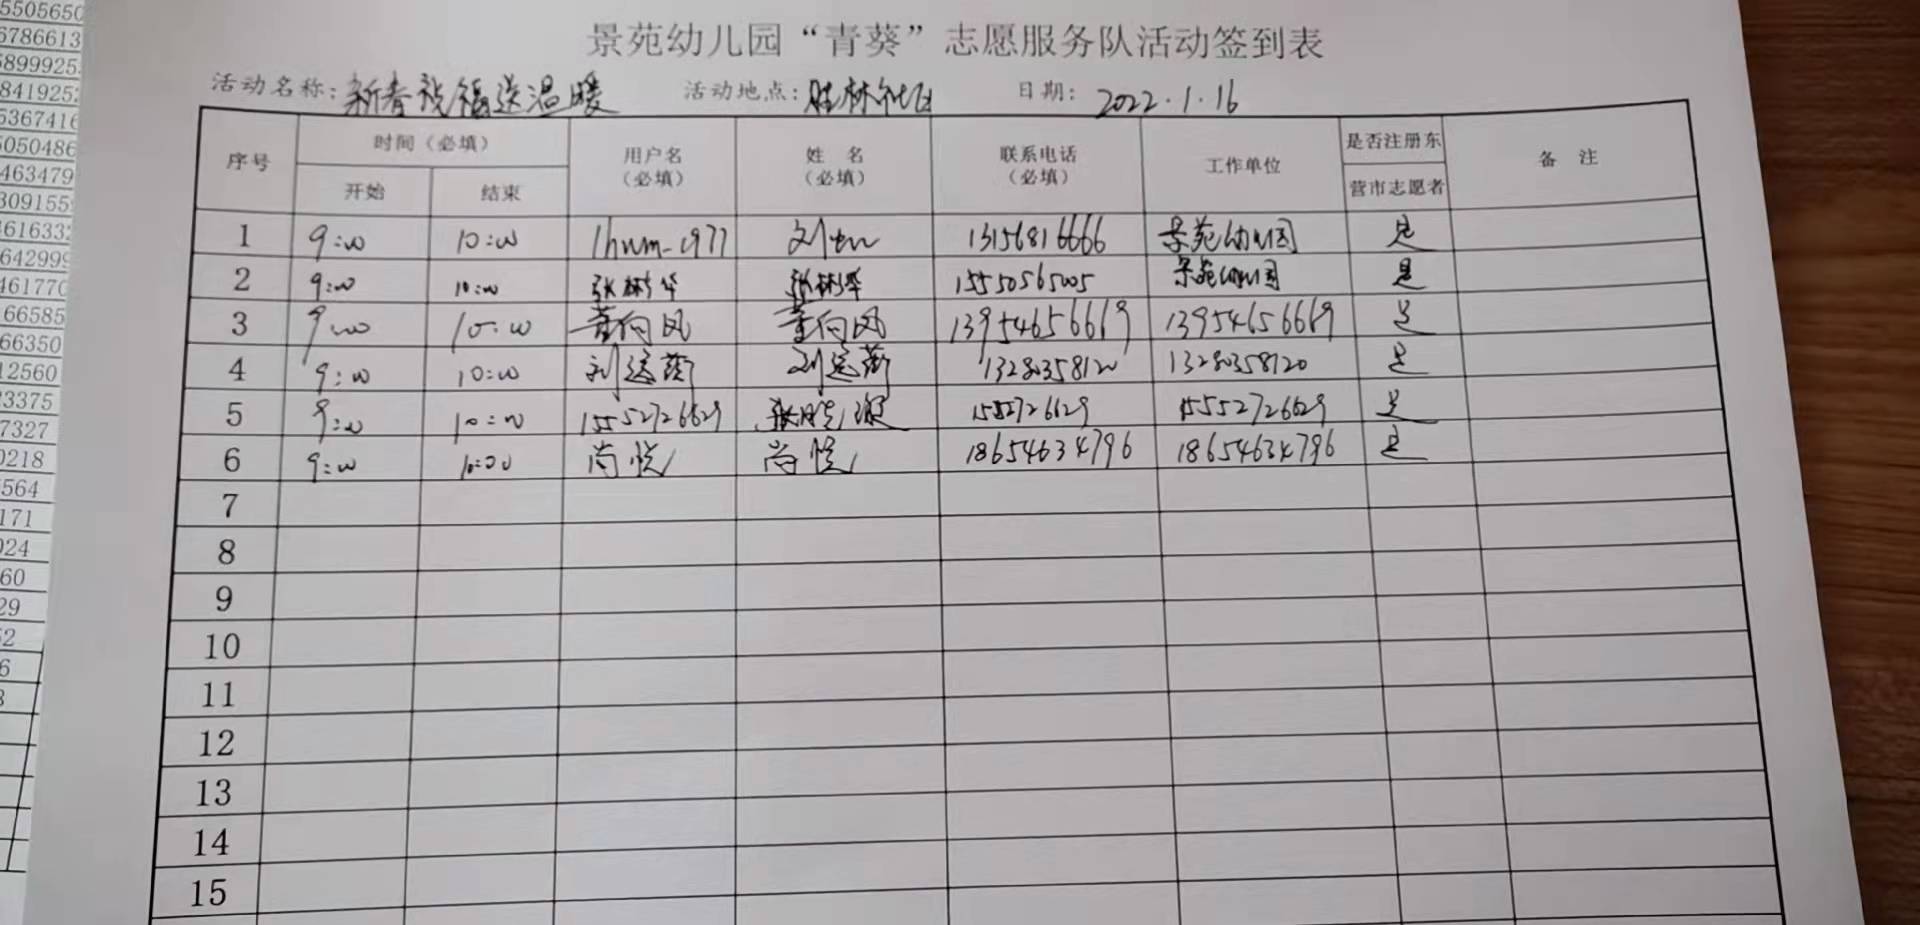 景苑幼儿园“青葵”志愿服务队活动签到表
活动名称：新春祝福送温暖 活动地点：胜林社区 日期：2022.1.16
序号 时间（必填） 用户名（必填） 姓 名（必填） 联系电话（必填） 工作单位 是否注册东营市志愿者 备 注
开始 结束
1 9:00 10:00 刘 13156816666 景苑幼儿园 是
2 9:00 10:00 张彬华 张彬华 15550565005 景苑幼儿园 是
3 9:00 10:00 董向风 董向风 13954656619 13954656619 是
4 9:00 10:00 刘 刘 13280358120 13280358120 是
5 9:00 10:00 15552726629 张 15552726629 是
6 9:00 10:00 尚悦 尚悦 18654634796 18654634796 是
7
8
9
10
11
12
13
14
15
5505650
6786613
5899925
8419252
5367416
5050486
463479
309155
461633
642999
461770
166585
66350
12560
3375
7327
0218
564
171
024
60
29